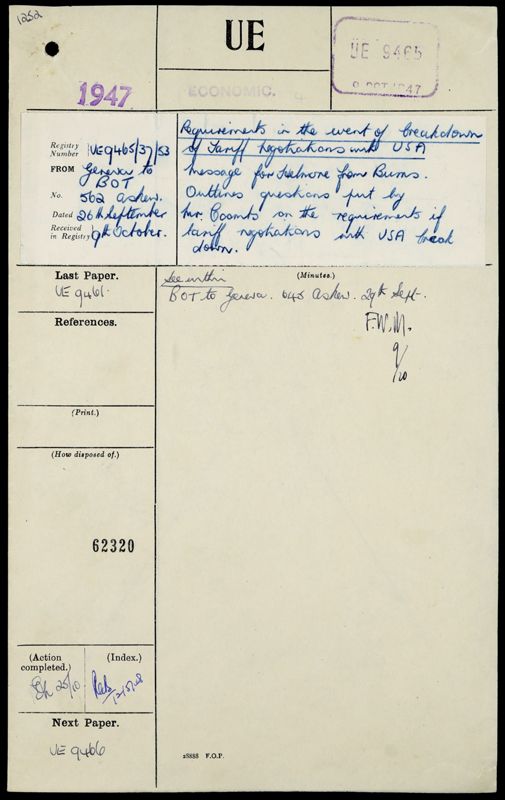 1252
UE
UE 9465
9 OCT 1947
1947
ECONOMIC.
Registry Number
UE9465/37/53
FROM Geneva to BOT
No. 502 asken.
Dated 26th September
Received in Registry 9th October.
Requirements in the event of breakdown
of Tariff negotiations with USA
message for Helmore from Burns.
Outlines questions put by
Mr. Coombs on the requirements if
tariff negotiations with USA break
down.
Last Paper.
UE 9461.
References.
(Print.)
(How disposed of.)
62320
(Action completed.)
(Index.)
25/10
12/5/48
Next Paper.
UE 9466
(Minutes.)
See within
BOT to Geneva. 645 asken. 29th Sept.
F.W.M.
9/10
28888 F.O.P.